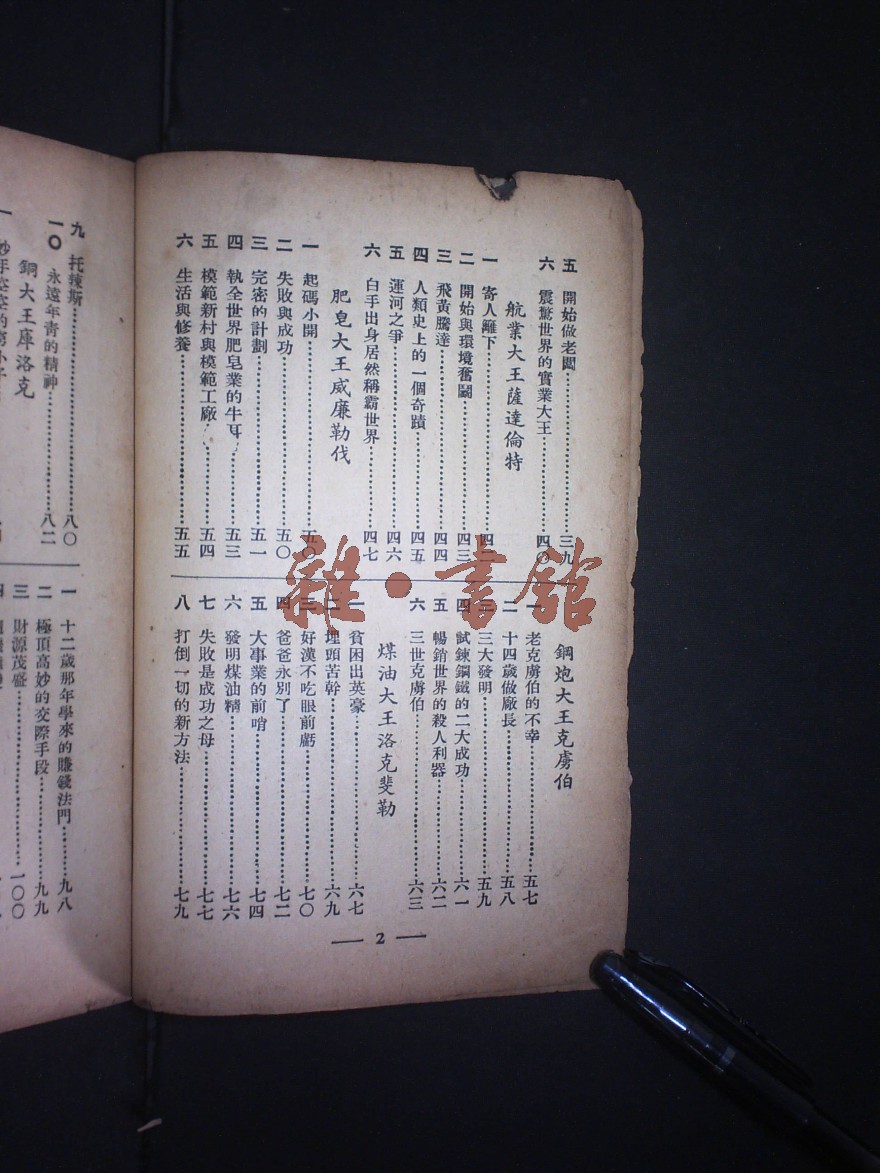 五 開始做老闆 三九
六 震驚世界的實業大王 四〇
航業大王薩達倫特
一 寄人籬下 四二
二 開始與環境奮鬭 四三
三 飛黃騰達 四四
四 人類史上的一個奇蹟 四五
五 運河之爭 四六
六 白手出身居然稱霸世界 四七
肥皂大王威廉勒伐
一 起碼小開 五〇
二 失敗與成功 五〇
三 完密的計劃 五一
四 執全世界肥皂業的牛耳 五三
五 模範新村與模範工廠 五四
六 生活與修養 五五
鋼炮大王克虜伯
一 老克虜伯的不幸 五七
二 十四歲做廠長 五八
三 三大發明 五九
四 試鍊鋼鐵的二大成功 六一
五 暢銷世界的殺人利器 六二
六 三世克虜伯 六三
煤油大王洛克斐勒
一 貧困出英豪 六七
二 埋頭苦幹 六九
三 好漢不吃眼前虧 七〇
四 爸爸永別了 七二
五 大事業的前哨 七四
六 發明煤油精 七六
七 失敗是成功之母 七七
八 打倒一切的新方法 七九
2
九 托辣斯 八〇
一〇 永遠年青的精神 八二
鋼大王庫洛克
一
一 十二歲那年學來的賺錢法門 九八
二 極頂高妙的交際手段 九九
三 財源茂盛 一〇〇
四
雜·書館